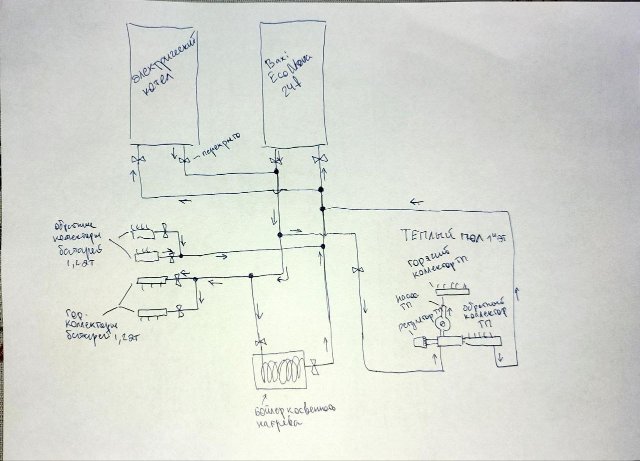 электрический
котел
Baxi
Eco Nova
24f
перекрыто
обратные
колекторы
батарей
1,2 эт
гор.
колекторы
батарей 1,2 эт
ТЕПЛЫЙ ПОЛ 1 эт
горячий
колектор ТП
насос
ТП
регулятор
обратный
коллектор
ТП
бойлер косвенного
нагрева